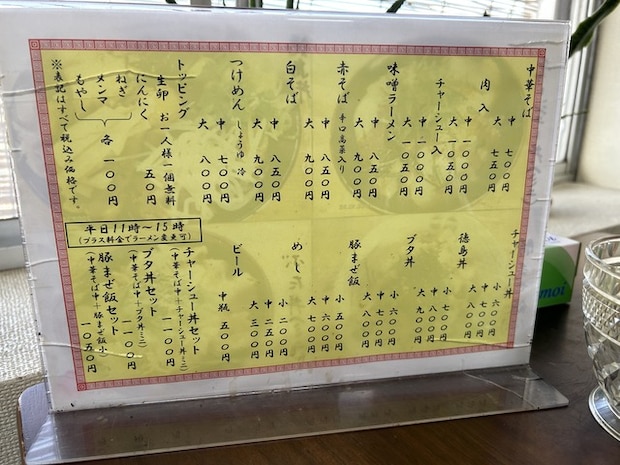 中華そば
中 七〇〇円
大 七五〇円
肉入
中 一〇〇〇円
大 一〇五〇円
チャーシュー入
味噌ラーメン
赤そば 辛口高菜入り
中 八五〇円
大 九〇〇円
白そば
中 八五〇円
大 九〇〇円
つけめん しょうゆ 冷
中 七〇〇円
大 八〇〇円
トッピング
生卵 お一人様一個無料
にんにく 五〇円
ねぎ
メンマ
もやし
各 一〇〇円
※表記はすべて税込み価格です。
チャーシュー丼
徳島丼
小 六〇〇円
中 七〇〇円
大 八〇〇円
ブタ丼
豚まぜ飯
小 五〇〇円
中 六〇〇円
大 七〇〇円
めし
小 二〇〇円
中 二五〇円
大 三〇〇円
ビール
中瓶 五〇〇円
平日11時～15時
(プラス料金でラーメン変更可)
チャーシュー丼セット
(中華そば中＋チャーシュー丼ミニ)
一一〇〇円
ブタ丼セット
(中華そば中＋ブタ丼ミニ)
一一〇〇円
豚まぜ飯セット
(中華そば中＋豚まぜ飯小)
一〇五〇円